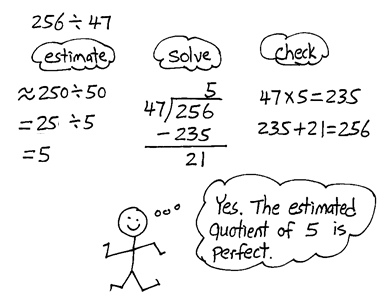 256 ÷ 47
estimate
≈ 250 ÷ 50
= 25 ÷ 5
= 5
solve
5
47)256
- 235
21
check
47 × 5 = 235
235 + 21 = 256
Yes. The estimated
quotient of 5 is
perfect.